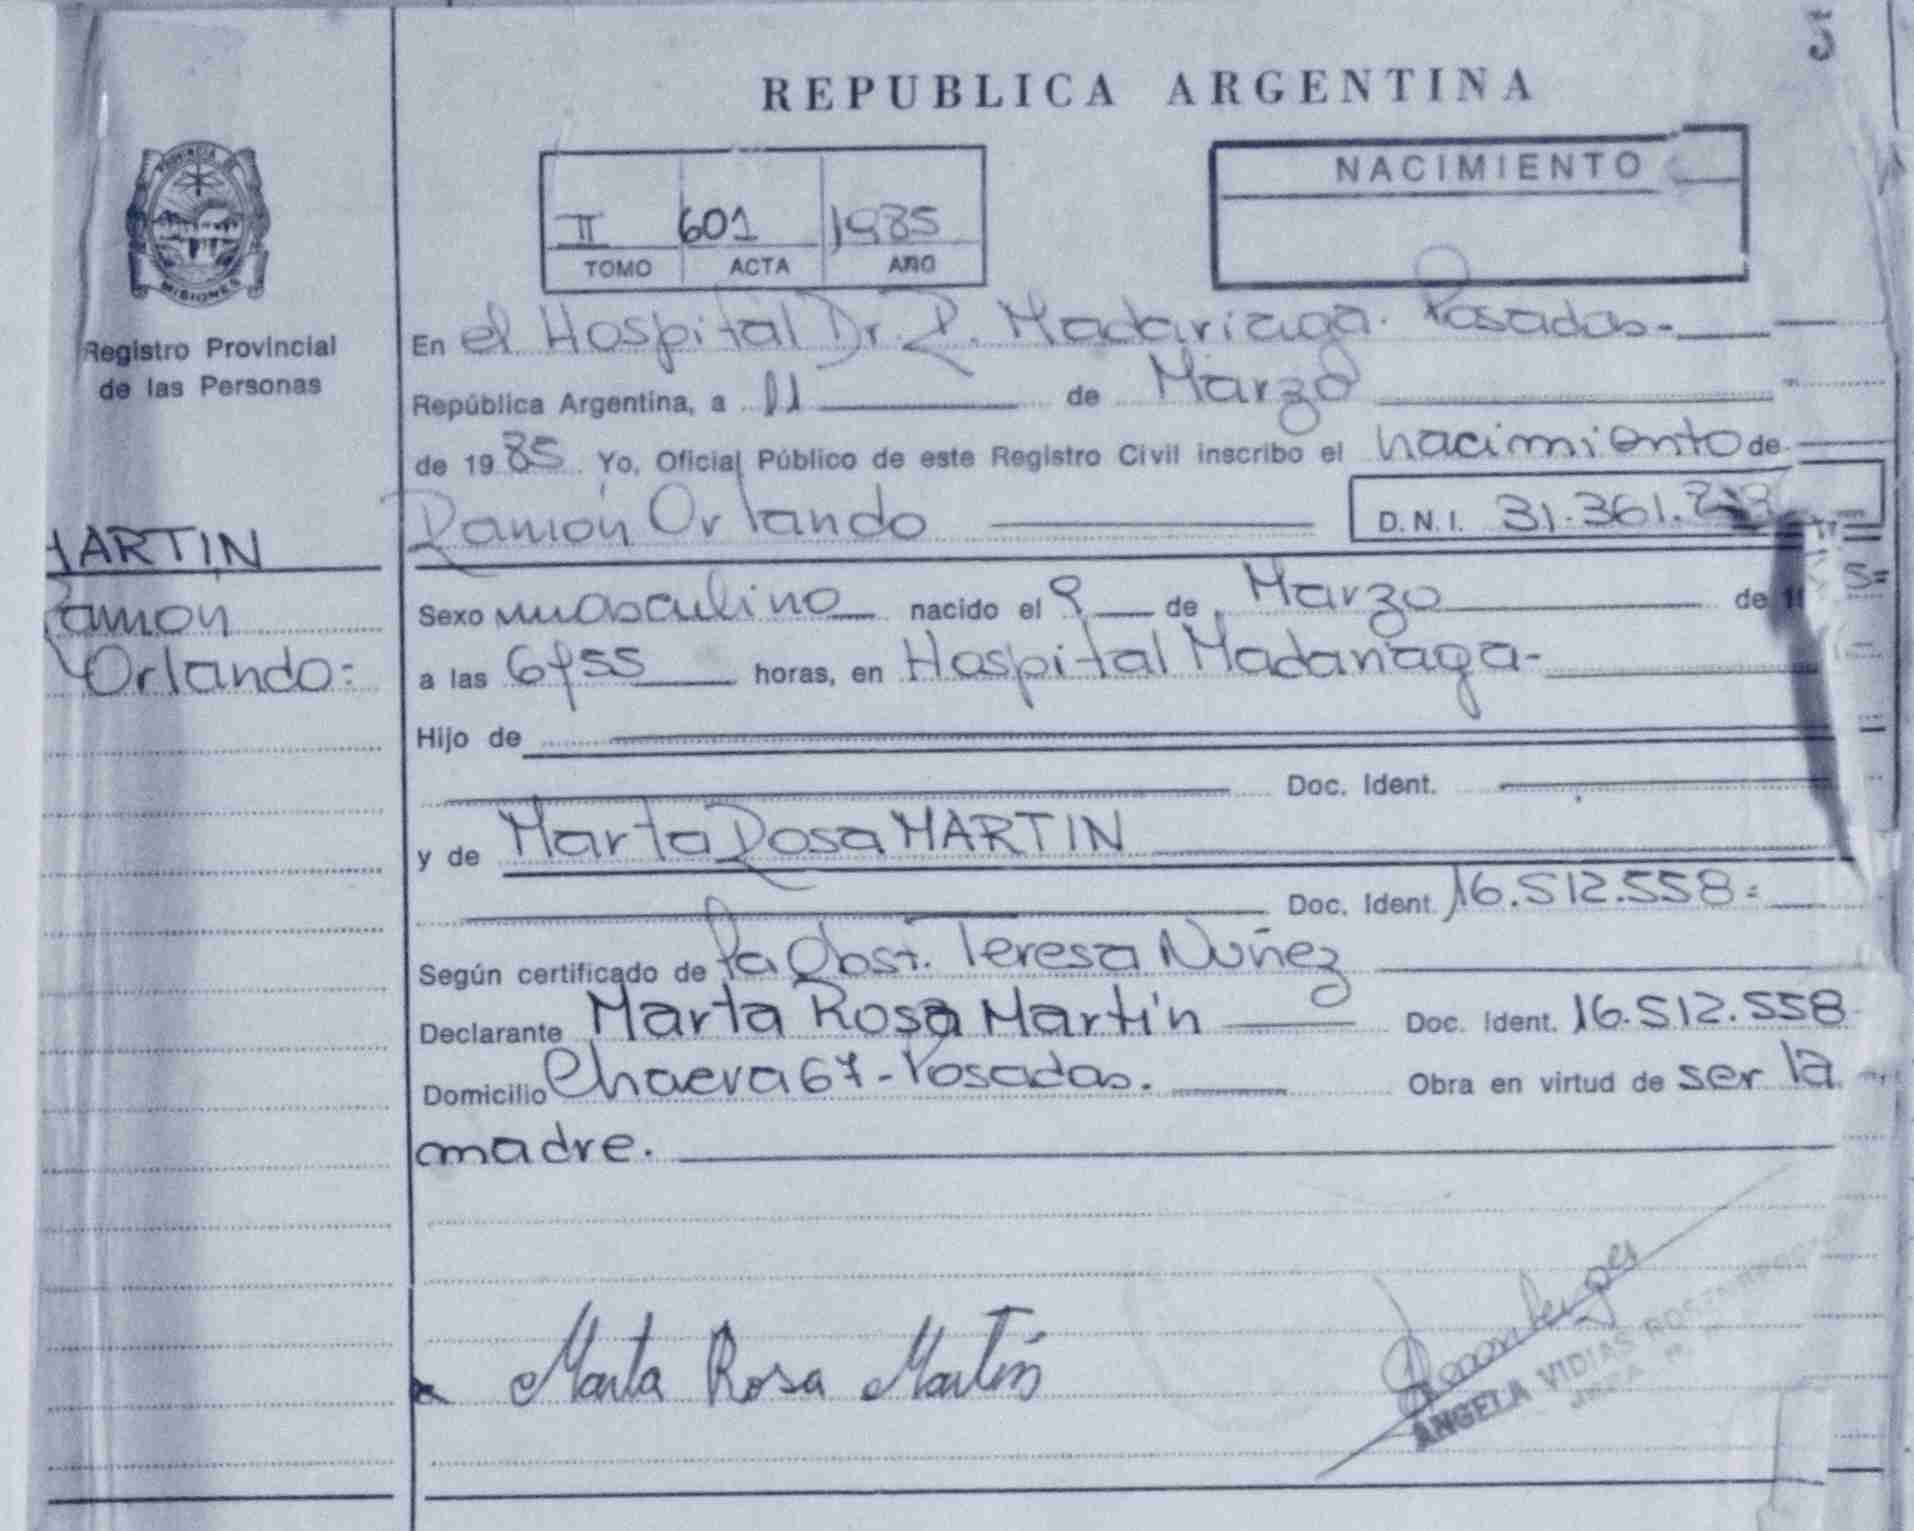 5
REPUBLICA ARGENTINA
NACIMIENTO
II 601 1985
TOMO ACTA AÑO
PROVINCIA DE
MISIONES
Registro Provincial
de las Personas
MARTIN
Ramón
Orlando=
En el Hospital Dr. R. Madariaga. Posadas.-
República Argentina, a 11 de Marzo
de 1985 Yo, Oficial Público de este Registro Civil inscribo el nacimiento de
Ramón Orlando D.N.I. 31.361.
Sexo masculino nacido el 9 de Marzo de 1 5=
a las 6y55 horas, en Hospital Madariaga-
Hijo de
Doc. Ident.
y de Marta Rosa MARTIN
Doc. Ident. 16.512.558=
Según certificado de la Obst. Teresa Nuñez
Declarante Marta Rosa Martín Doc. Ident. 16.512.558
Domicilio Chacra 67-Posadas. Obra en virtud de ser la
madre.
Marta Rosa Martín
ANGELA VIDIAS